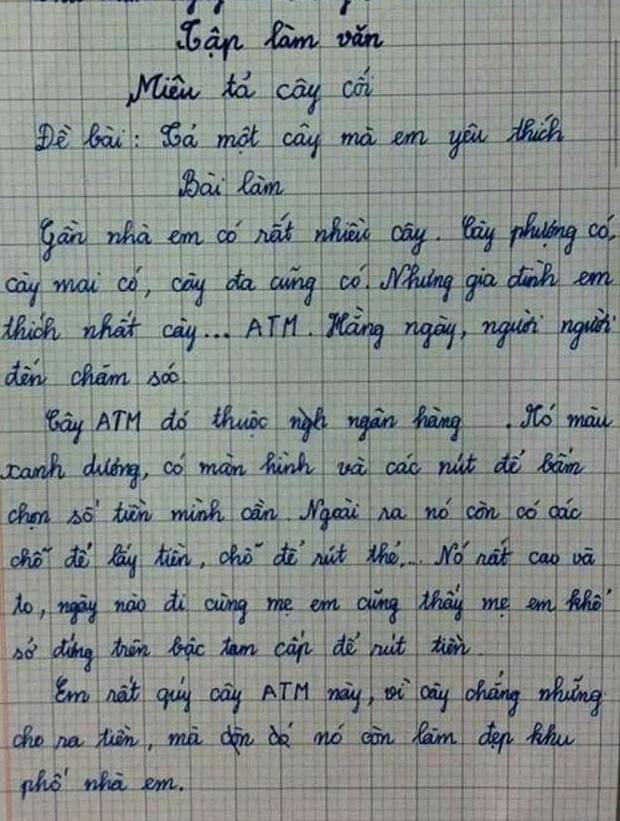 Tập làm văn
Miêu tả cây cối
Đề bài: Tả một cây mà em yêu thích
Bài làm
Gần nhà em có rất nhiều cây. Cây phượng có,
cây mai có, cây đa cũng có. Nhưng gia đình em
thích nhất cây... ATM. Hằng ngày, người người
đến chăm sóc.
Cây ATM đó thuộc ngh ngân hàng . Nó màu
xanh dương, có màn hình và các nút để bấm
chọn số tiền mình cần. Ngoài ra nó còn có các
chỗ để lấy tiền, chỗ để rút thẻ,... Nó rất cao và
to, ngày nào đi cùng mẹ em cũng thấy mẹ em khổ
sở đứng trên bậc tam cấp để rút tiền.
Em rất quý cây ATM này, vì cây chẳng những
cho ra tiền, mà nó còn làm đẹp khu
phố nhà em.